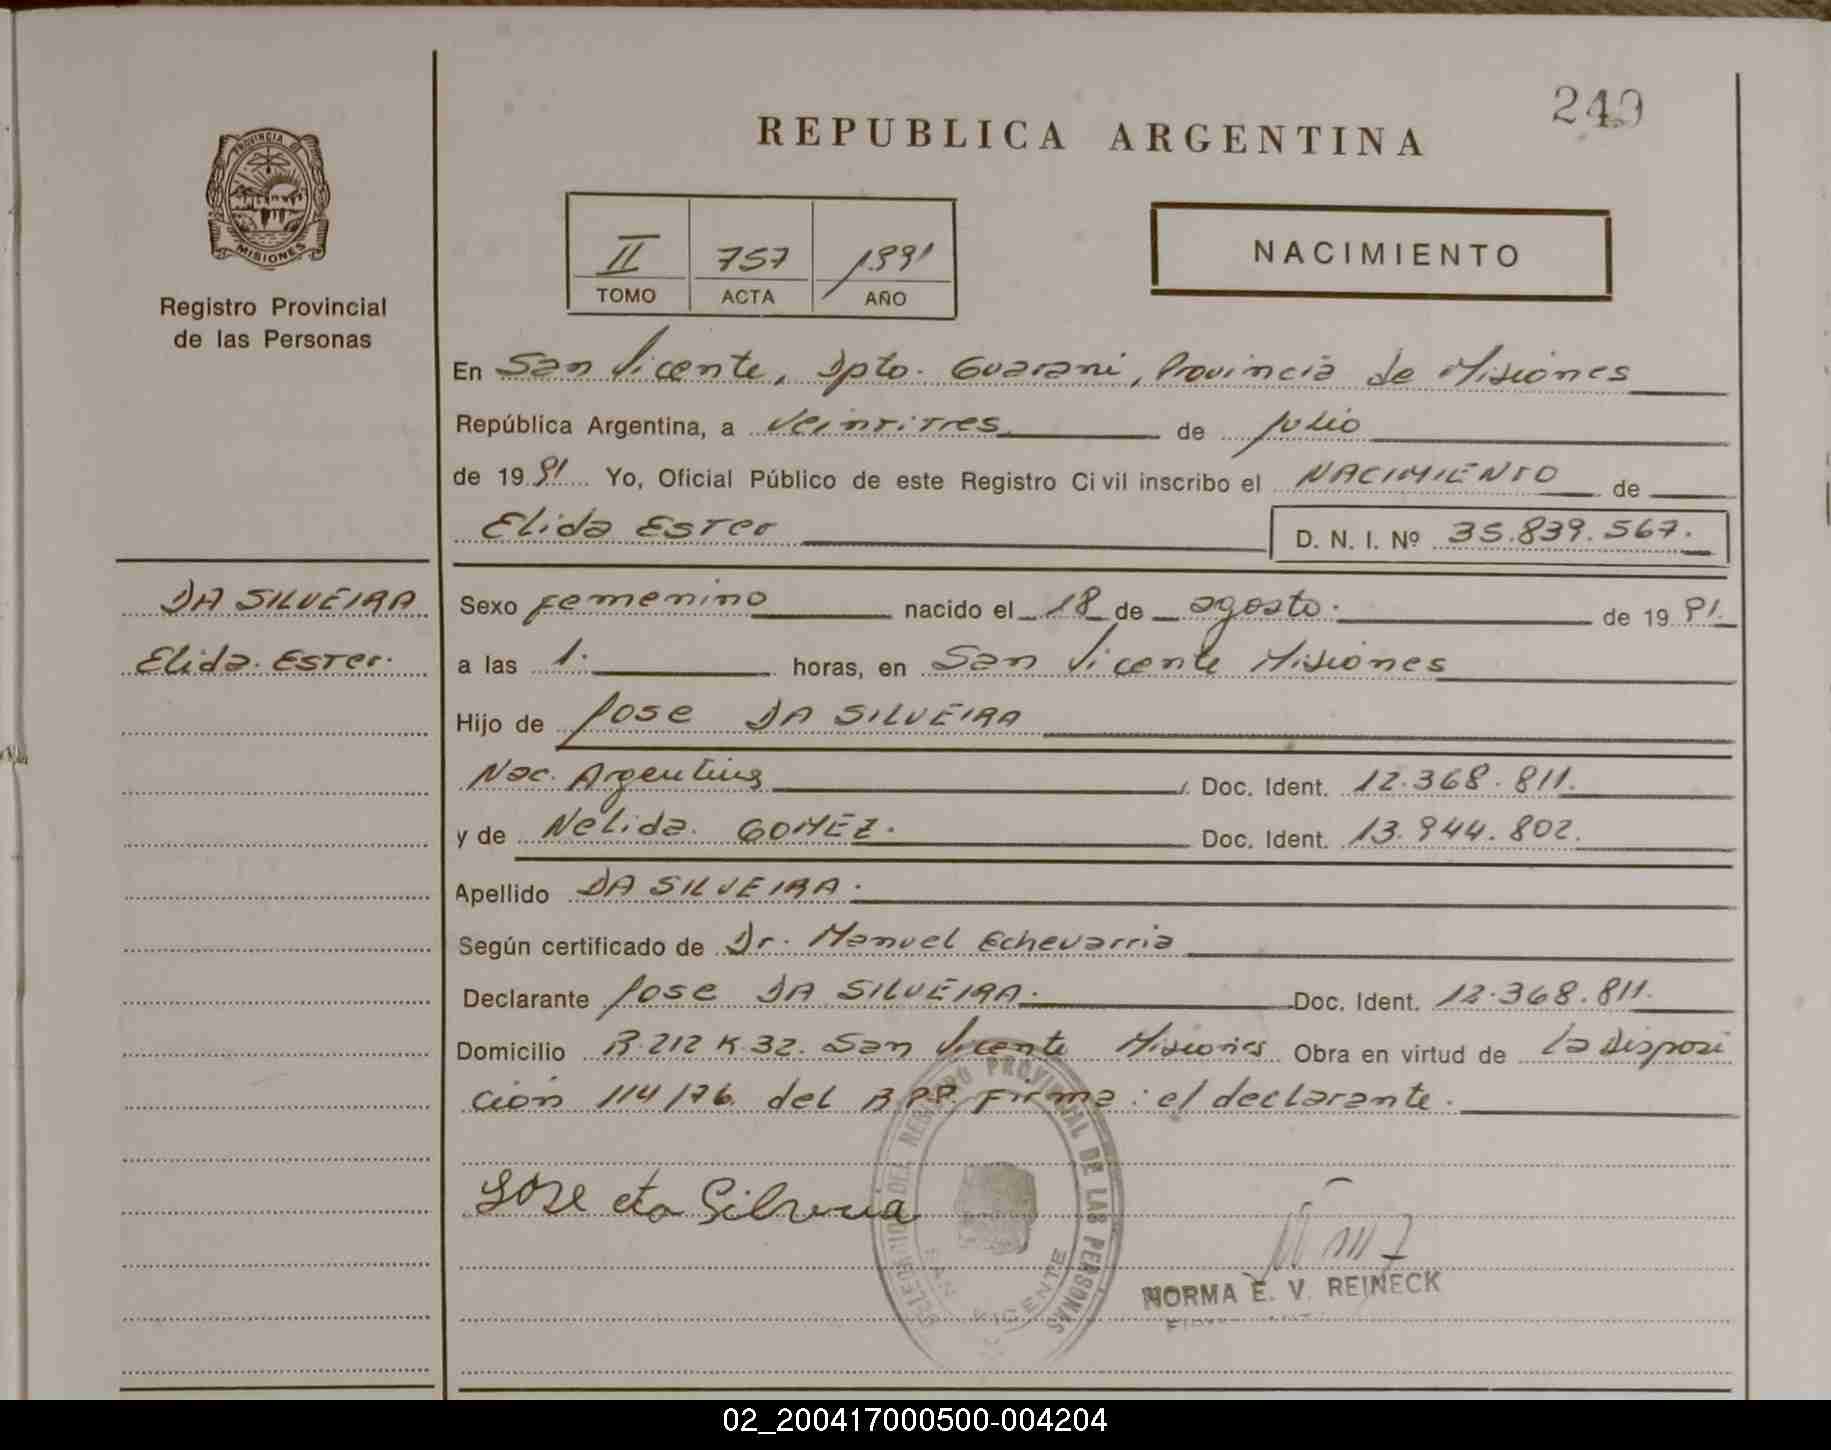 249
REPUBLICA ARGENTINA
PROVINCIA DE
MISIONES
Registro Provincial
de las Personas
II 757 1991
TOMO ACTA AÑO
NACIMIENTO
En San Vicente, Dpto. Guarani, Provincia de Misiones
República Argentina, a veintitres de julio
de 1991 Yo, Oficial Público de este Registro Civil inscribo el NACIMIENTO de
Elida Ester D. N. I. Nº 35.839.567.
DA SILVEIRA
Elida Ester.
Sexo femenino nacido el 18 de agosto. de 1991.
a las 1. horas, en San Vicente Misiones
Hijo de Jose DA SILVEIRA
Nac. Argentina Doc. Ident. 12.368.811.
y de Nelida GOMEZ. Doc. Ident. 13.944.802.
Apellido DA SILVEIRA.
Según certificado de Dr. Manuel Echevarria
Declarante Jose DA SILVEIRA. Doc. Ident. 12.368.811.
Domicilio R 212 K 32. San Vicente Misiones Obra en virtud de la Disposi
ción 114/76 del R.P.P. Firma: el declarante.
Jose da Silveira
DEL REGISTRO PROVINCIAL DE LAS PERSONAS
SAN VICENTE
NORMA E. V. REINECK
02_200417000500-004204